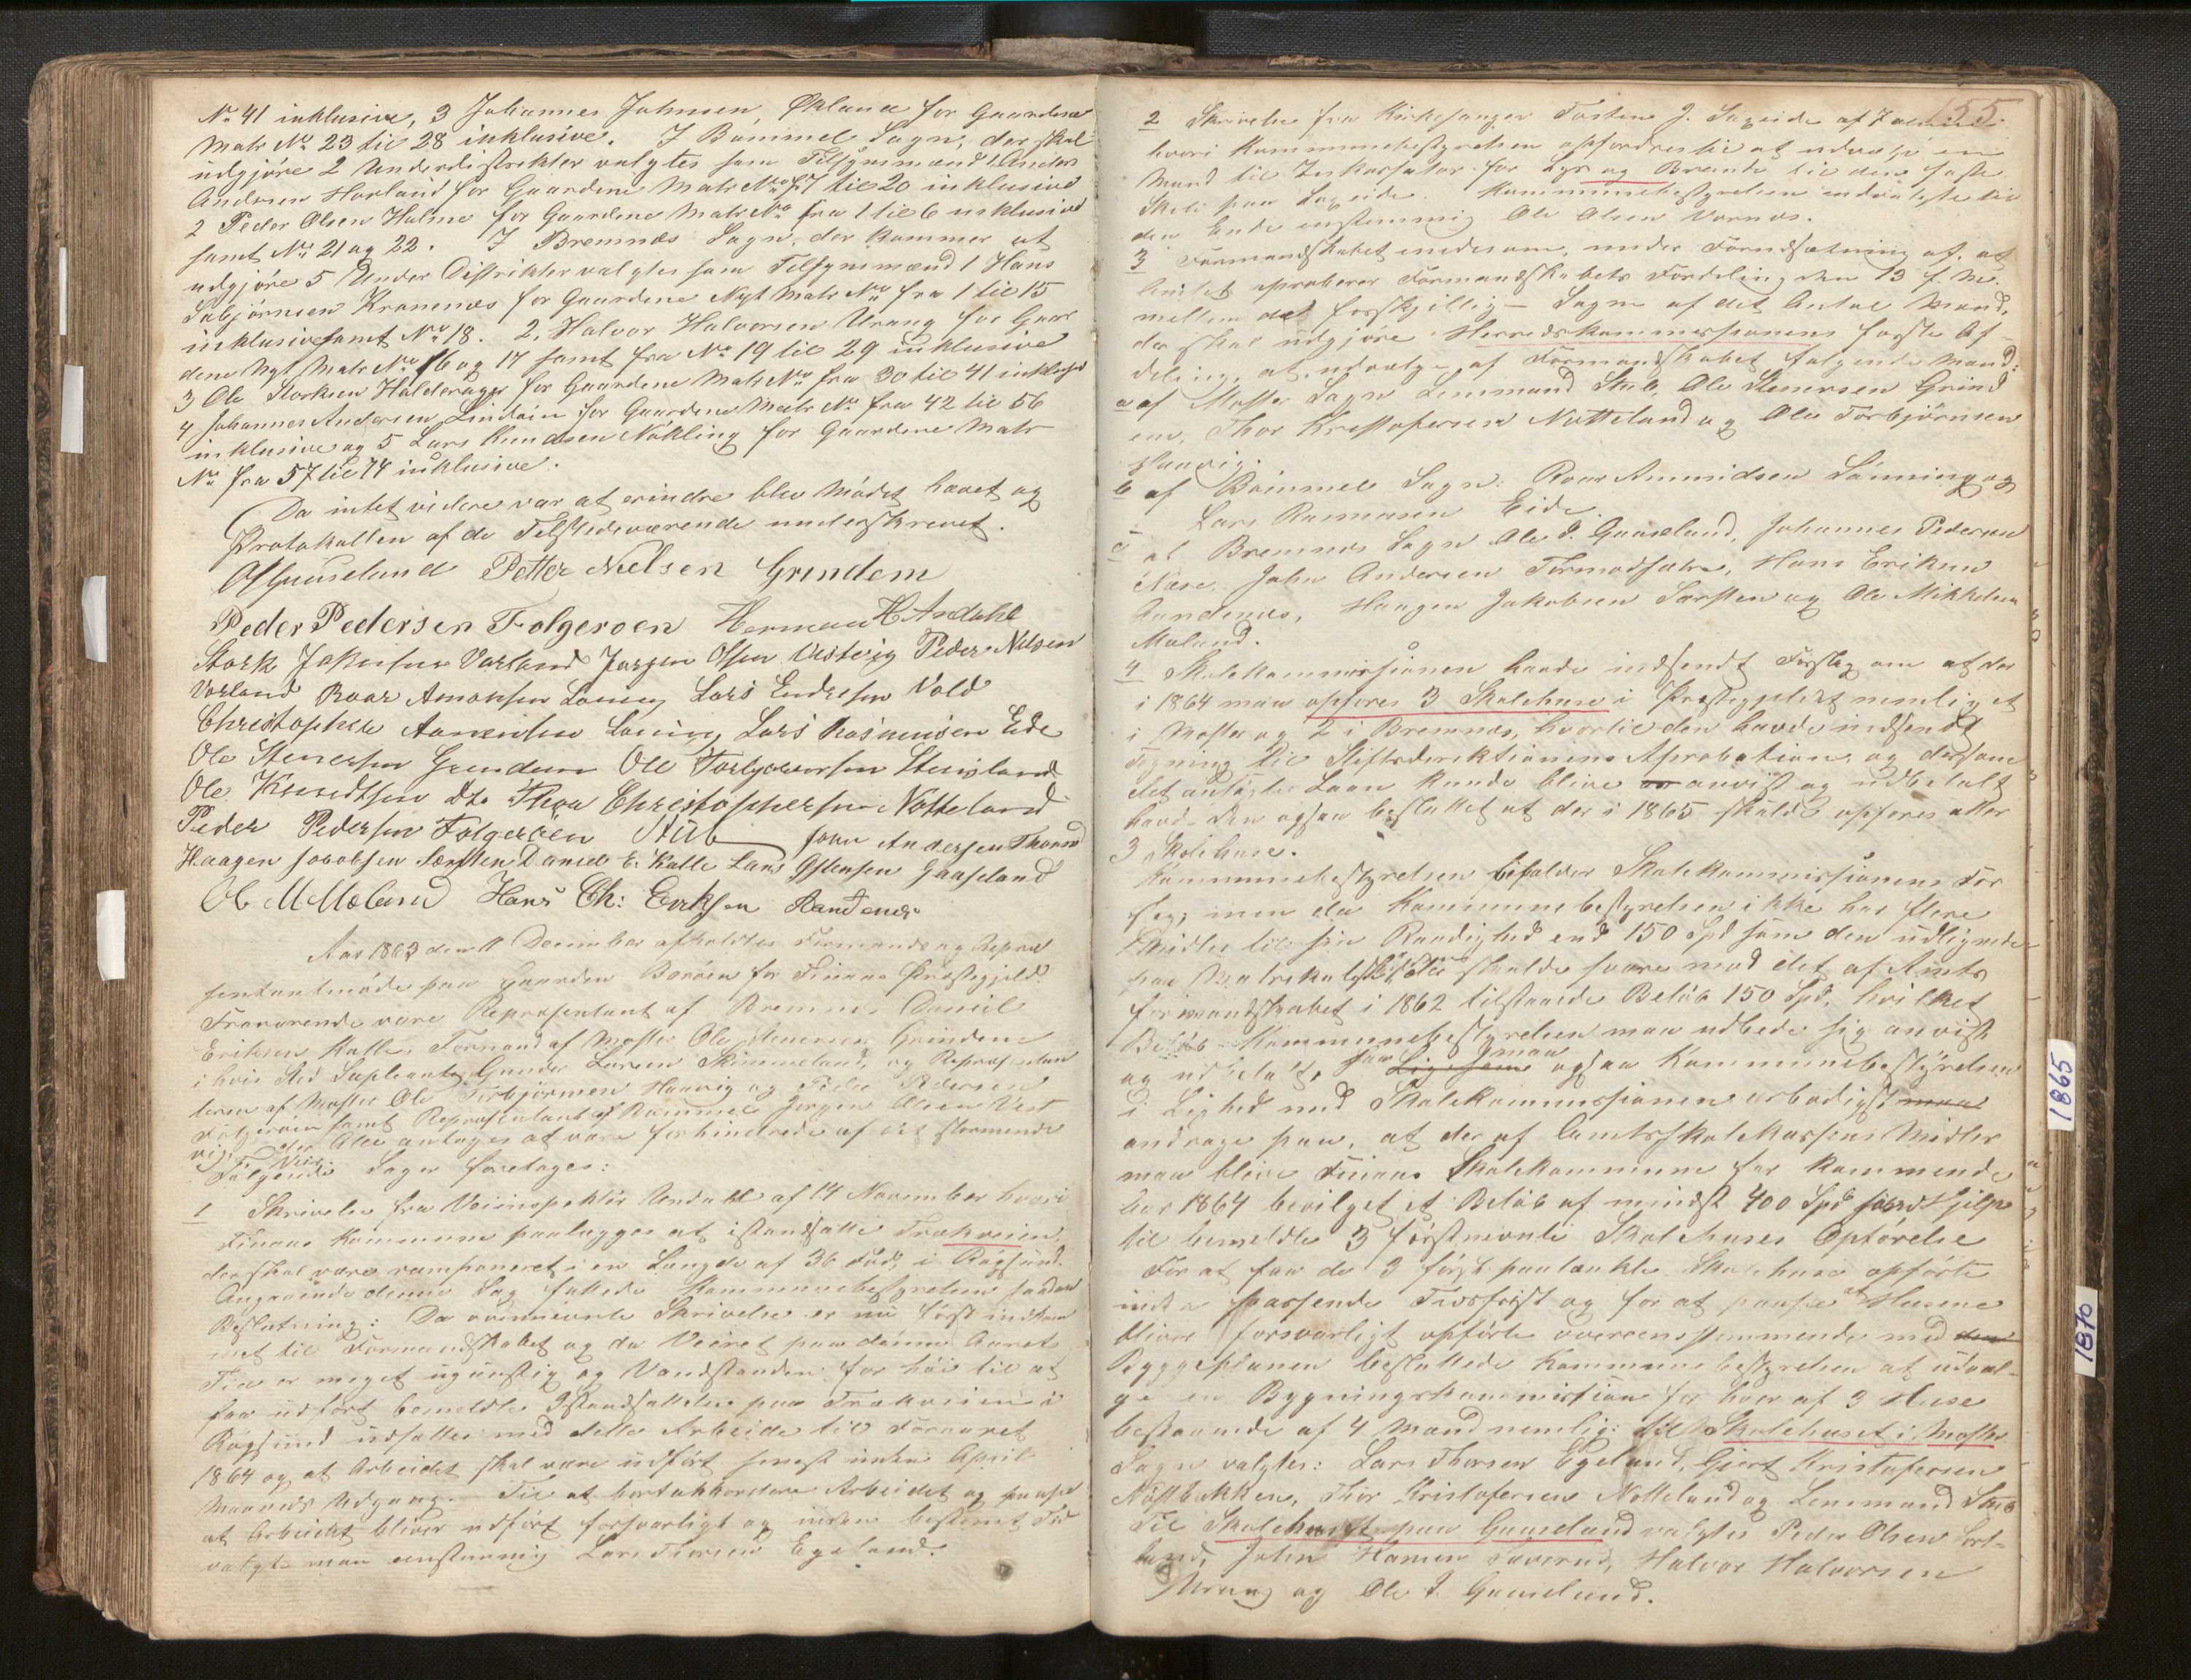 No 41 inklusive, 3 Johannes Johnsen, Økland for Gaardene
Matr No 23 til 28 inklusive. I Bømmel Sogn, der skal
udgjøre 2 Underdistrikter valgtes som Tilsynsmænd 1. Anders
Andersen Horland for Gaardene Matr No 7 til 20 inklusive
2 Peder Olsen Holme for Gaardene Matr No fra 1 til 6 inklusive
samt No 21 og 22. I Bremnæs Sogn, der kommer at
udgjøre 5 Under Distrikter valgtes som Tilsynsmænd 1 Hans
Sebjørnsen Kranenæs for Gaardene Nyt Matr No fra 1 til 15
inklusive samt No 18. 2, Halvor Halvorsen Urang for Gaar
dene Nyt Matr No 16 og 17 samt fra No 19 til 29 inklusive
3 Ole Storksen Halderager for Gaardene Matr No fra 30 til 41 inklusive
4 Johannes Andersen Lindøen for Gaardene Matr No fra 42 til 56
inklusive og 5 Lars Knudsen Nøkling for Gaardene Matr
No fra 57 til 74 inklusive.
Da intet videre var at erindre blev Mødet hævet og
Protokollen af de Tilstedeværende underskrevet.
Gaaseland Petter Nielsen Grindem
Peder Pedersen Folgeroen Herman H Andahl
Stork Jakobsen Vorland Jørgen Olsen Vestvig Peder Nilsen
Vorland Roar Amonsen Løning Lars Endresen Vold
Christopher Løning Lars Rasmusen Eide
Ole Stenersen Grindem Ole Torbjørnsen
Ole Knudtsen do Thor Christophersen Notteland
Peder Pedersen Folgerøen Stub John Andersen
Haagen Jacobsen Sørsten Daniel E. Kalle Lars Gaaseland
Ole M Moland Hans Ch: Eriksen Aandenæs
Aar 1863 den 11 December afholdtes Formands og Repræ
sentantmøde paa Gaarden Børøen for Finaas Præstegjeld.
Fraværende vare Repræsentant af Bremnæs Daniel
Eriksen Kalle, Formand af Moster Ole Stenersen Grindem
i hvis Sted Supleanten Gunder Larsen Skimmeland, og Repræsentan
terne af Moster Ole Torbjørnsen Haavig og Peder Pedersen
Folgerøen samt Repræsentant af Bømmel Jørgen Olsen Vest
vig, der Alle antages at være forhindrede af det stormende
Veir.
Følgende Sager foretages:
1 Skrivelse fra Veiinspektør Undahl af 14 November hvori
Finaas Kommune paalægges at istandsætte Trækveien,
der skal være ramponeret i en Længde af 36 Fod, i Røgsund.
Angaaende denne Sag fattede Kommunebestyrelsen saadan
Beslutning: Da ovennævnte Skrivelse er nu først indkom
met til Formandskabet og da Veiret paa denne Aarets
Tid er meget ugunstig og Vandstanden for høi til at
faa udført bemeldte Istandsættelse paa Trækveien i
Røgsund udsættes med dette Arbeide til Foraaret
1864 og at Arbeidet skal være udført senest inden April
Maaneds Udgang. Til at bortakkordere Arbeidet og paase
at Arbeidet bliver udført forsvarligt og inden bestemt Tid
valgte man enstemmig Lars Thorsen Egeland.
155
2 Skrivelse fra Kirkesanger Tosten J. Sageide af
hvori Kommunebestyrelsen opfordres til at udvælge en
Mand til Inkassator for Lys og Brænde til den faste
Skole paa Sageide. Kommunebestyrelsen udvalgte til
den Ende enstemmig Ole Olsen Vornæs.
3 Formandskabet enedes om, under Forudsætning af, at
Amtet aproberer Formandskabets Fordeling den 13 f. M.
mellem de forskjellige Sogne af det Antal Mænd,
der skal udgjøre Herredskommissionens første Af-
deling, at udvælge af Formandskabet følgende Mænd:
a af Moster Sogn Lensmand Stub, Ole Stenersen Grind
em, Thor Kristofersen Notteland og Ole Torbjørnsen
Haavig.
b af Bømmel Sogn: Roar Ammundsen Lønning og
Lars Rasmusen Eide.
c af Bremnæs Sogn Ole T. Gaaseland, Johannes Pedersen
Næse, John Andersen Tormodsæter, Hans Eriksen
Aandenæs, Haagen Jakobsen Sørsten og Ole Mikkelsen
Moland.
4 Skolekommissionen havde indsendt Forslag om at der
i 1864 maa opføres 3 Skolehuse i Præstegjeldet nemlig et
i Moster og 2 i Bremnæs, hvortil den havde indsendt
Tegning til Stiftsdirektionens Aprobation, og dersom
det antagte Laan kunde blive anvist og udbetalt
havde den ogsaa besluttet at der i 1865 skulde opføres atter
3 Skolehuse.
Kommunebestyrelsen bifalder Skolekommissionens For
slag, men da Kommunebestyrelsen ikke har flere
Midler til sin Raadighed end 150 Spd som den udlignede
paa Matrikulskylden skulde svare mod det af Amts
formandskabet i 1862 tilstaaede Beløb 150 Spd, hvilket
Beløb Kommunebestyrelsen maa udbede sig anvist
og udbetalt, saa Ligesom maa ogsaa Kommunebestyrelsen
i Lighed med Skolekommissionen ærbødigst maa
andrage paa, at der af Amtsskolekassens Midler
maa blive Finaas Skolekommune for kommende
Aar 1864 bevilget et Beløb af mindst 400 Spd som Hjelp
til bemeldte 3 førstnævnte Skolehuses Opførelse
For at faa de 3 først paatænkte Skolehuse opførte
inden passende Tidsfrist og for at paase at Husene
bliver forsvarligt opførte overensstemmende med den
Byggeplanen besluttede Kommunebestyrelsen at udvæl-
ge en Bygningskommission for hver af 3 Huse
bestaaende af 4 Mænd nemlig: til Skolehuset i Moster
Sogn valgtes: Lars Thorsen Egeland, Gjert Kristofersen
Nøstbakken, Thor Kristofersen Notteland og Lensmand Stub
Til Skolehuset paa Gaaseland valgtes Peder Olsen
land, John Hansen Halvor Halvorsen
Urang og Ole T. Gaaseland.
1865
1870